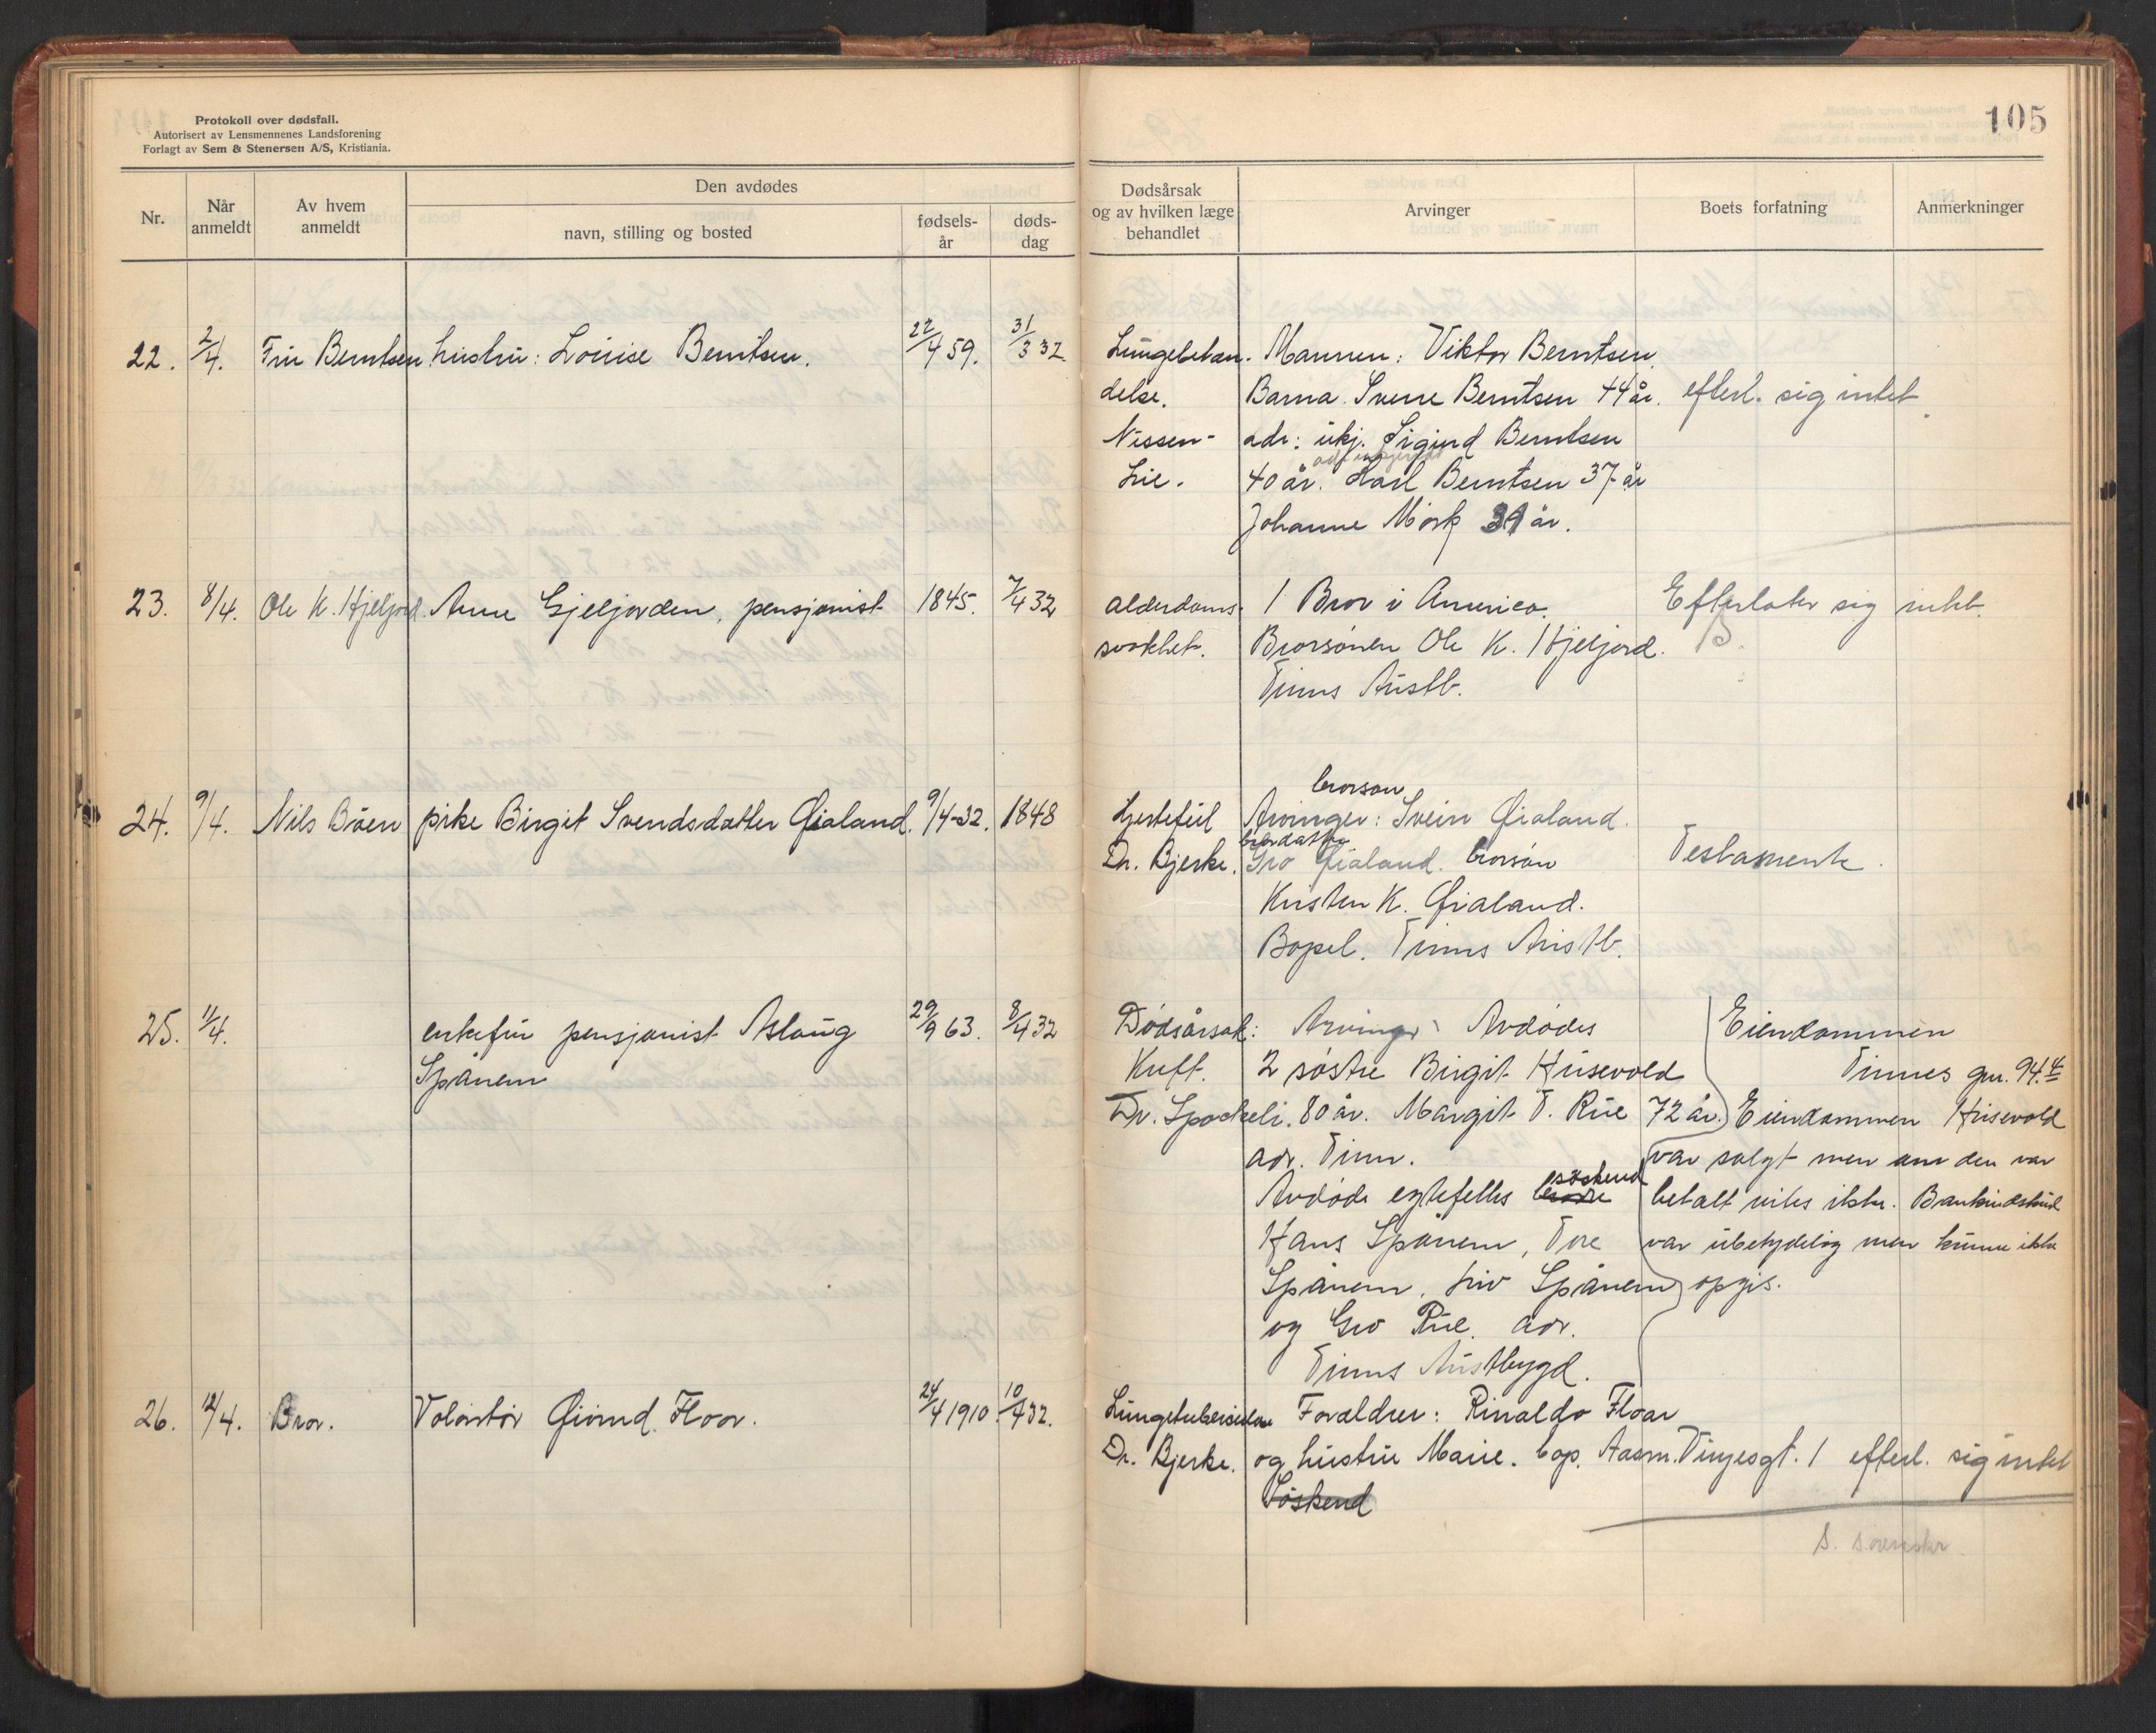 Protokoll over dødsfall.
Autorisert av Lensmennenes Landsforening
Forlagt av Sem & Stenersen A/S, Kristiania.
105
Nr.
Når anmeldt
Av hvem anmeldt
Den avdødes
navn, stilling og bosted
fødsels-år
døds-dag
Dødsårsak og av hvilken læge behandlet
Arvinger
Boets forfatning
Anmerkninger
22. 2/4. Fru Berntsen hustru: Louise Berntsen. 22/4 59. 31/3 32 Lungebetæn- Mannen: Viktor Berntsen.
delse. Barna. Sverre Berntsen 44 år. efterl. sig intet
Nissen- adr: ukj. Sigurd Berntsen
Lie. 40 år. Karl Berntsen 37 år
Johanne Mörk 31 år.
23. 8/4. Ole K. Hjeljord. Anne Gjeljorden, pensjonist 1845. 7/4 32 alderdoms- 1 Bror i America. Efterlater sig intet.
svakhet. Brorsönen Ole K. Hjeljord.
Tinns Austb.
brorsön
24. 9/4. Nils Böen pike Birgit Svendsdatter Øialand. 9/4-32. 1848 Hjertefeil Arvinger: Svein Øialand.
brordatter
Dr. Bjerke. Gro Øialand. brorsön Testamente.
Kristen K. Øialand.
Bopel. Tinns Austb.
25. 11/4. enkefru pensjonist Aslaug 29/9 63. 8/4 32 Dödsårsak: Arvinger Avdödes Eiendommen
Spånem Kreft. 2 söstre Birgit Husevold Tinnes gnr. 94.4
Dr. Spockeli. 80 år. Margit T. Rue 72 år. Eiendommen Husevold
adr. Tinn. var solgt men om den var
söskend
Avdöde egtefelles brödre betalt vites ikke. Bankindskud
Hans Spånem, Tore var ubetydelig men kunne ikke
Spånem, Liv Spånem opgis.
og Gro Rue. adr.
Tinns Austbygd.
26. 12/4. Bror. Volontör Øivind Floor. 24/4 1910. 10/4 32. Lungetuberkulose Foreldrer: Rinaldo Floor
Dr. Bjerke. og hustru Marie. bop. Aasm. Vinjesgt. 1 efterl. sig intet
Söskend